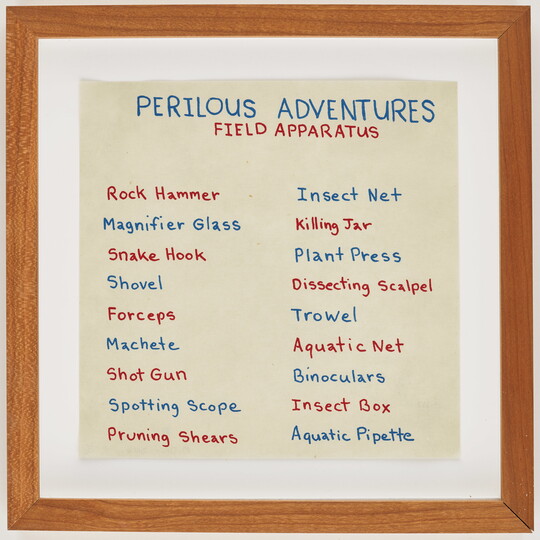 PERILOUS ADVENTURES
FIELD APPARATUS
Rock Hammer
Magnifier Glass
Snake Hook
Shovel
Forceps
Machete
Shot Gun
Spotting Scope
Pruning Shears
Insect Net
Killing Jar
Plant Press
Dissecting Scalpel
Trowel
Aquatic Net
Binoculars
Insect Box
Aquatic Pipette